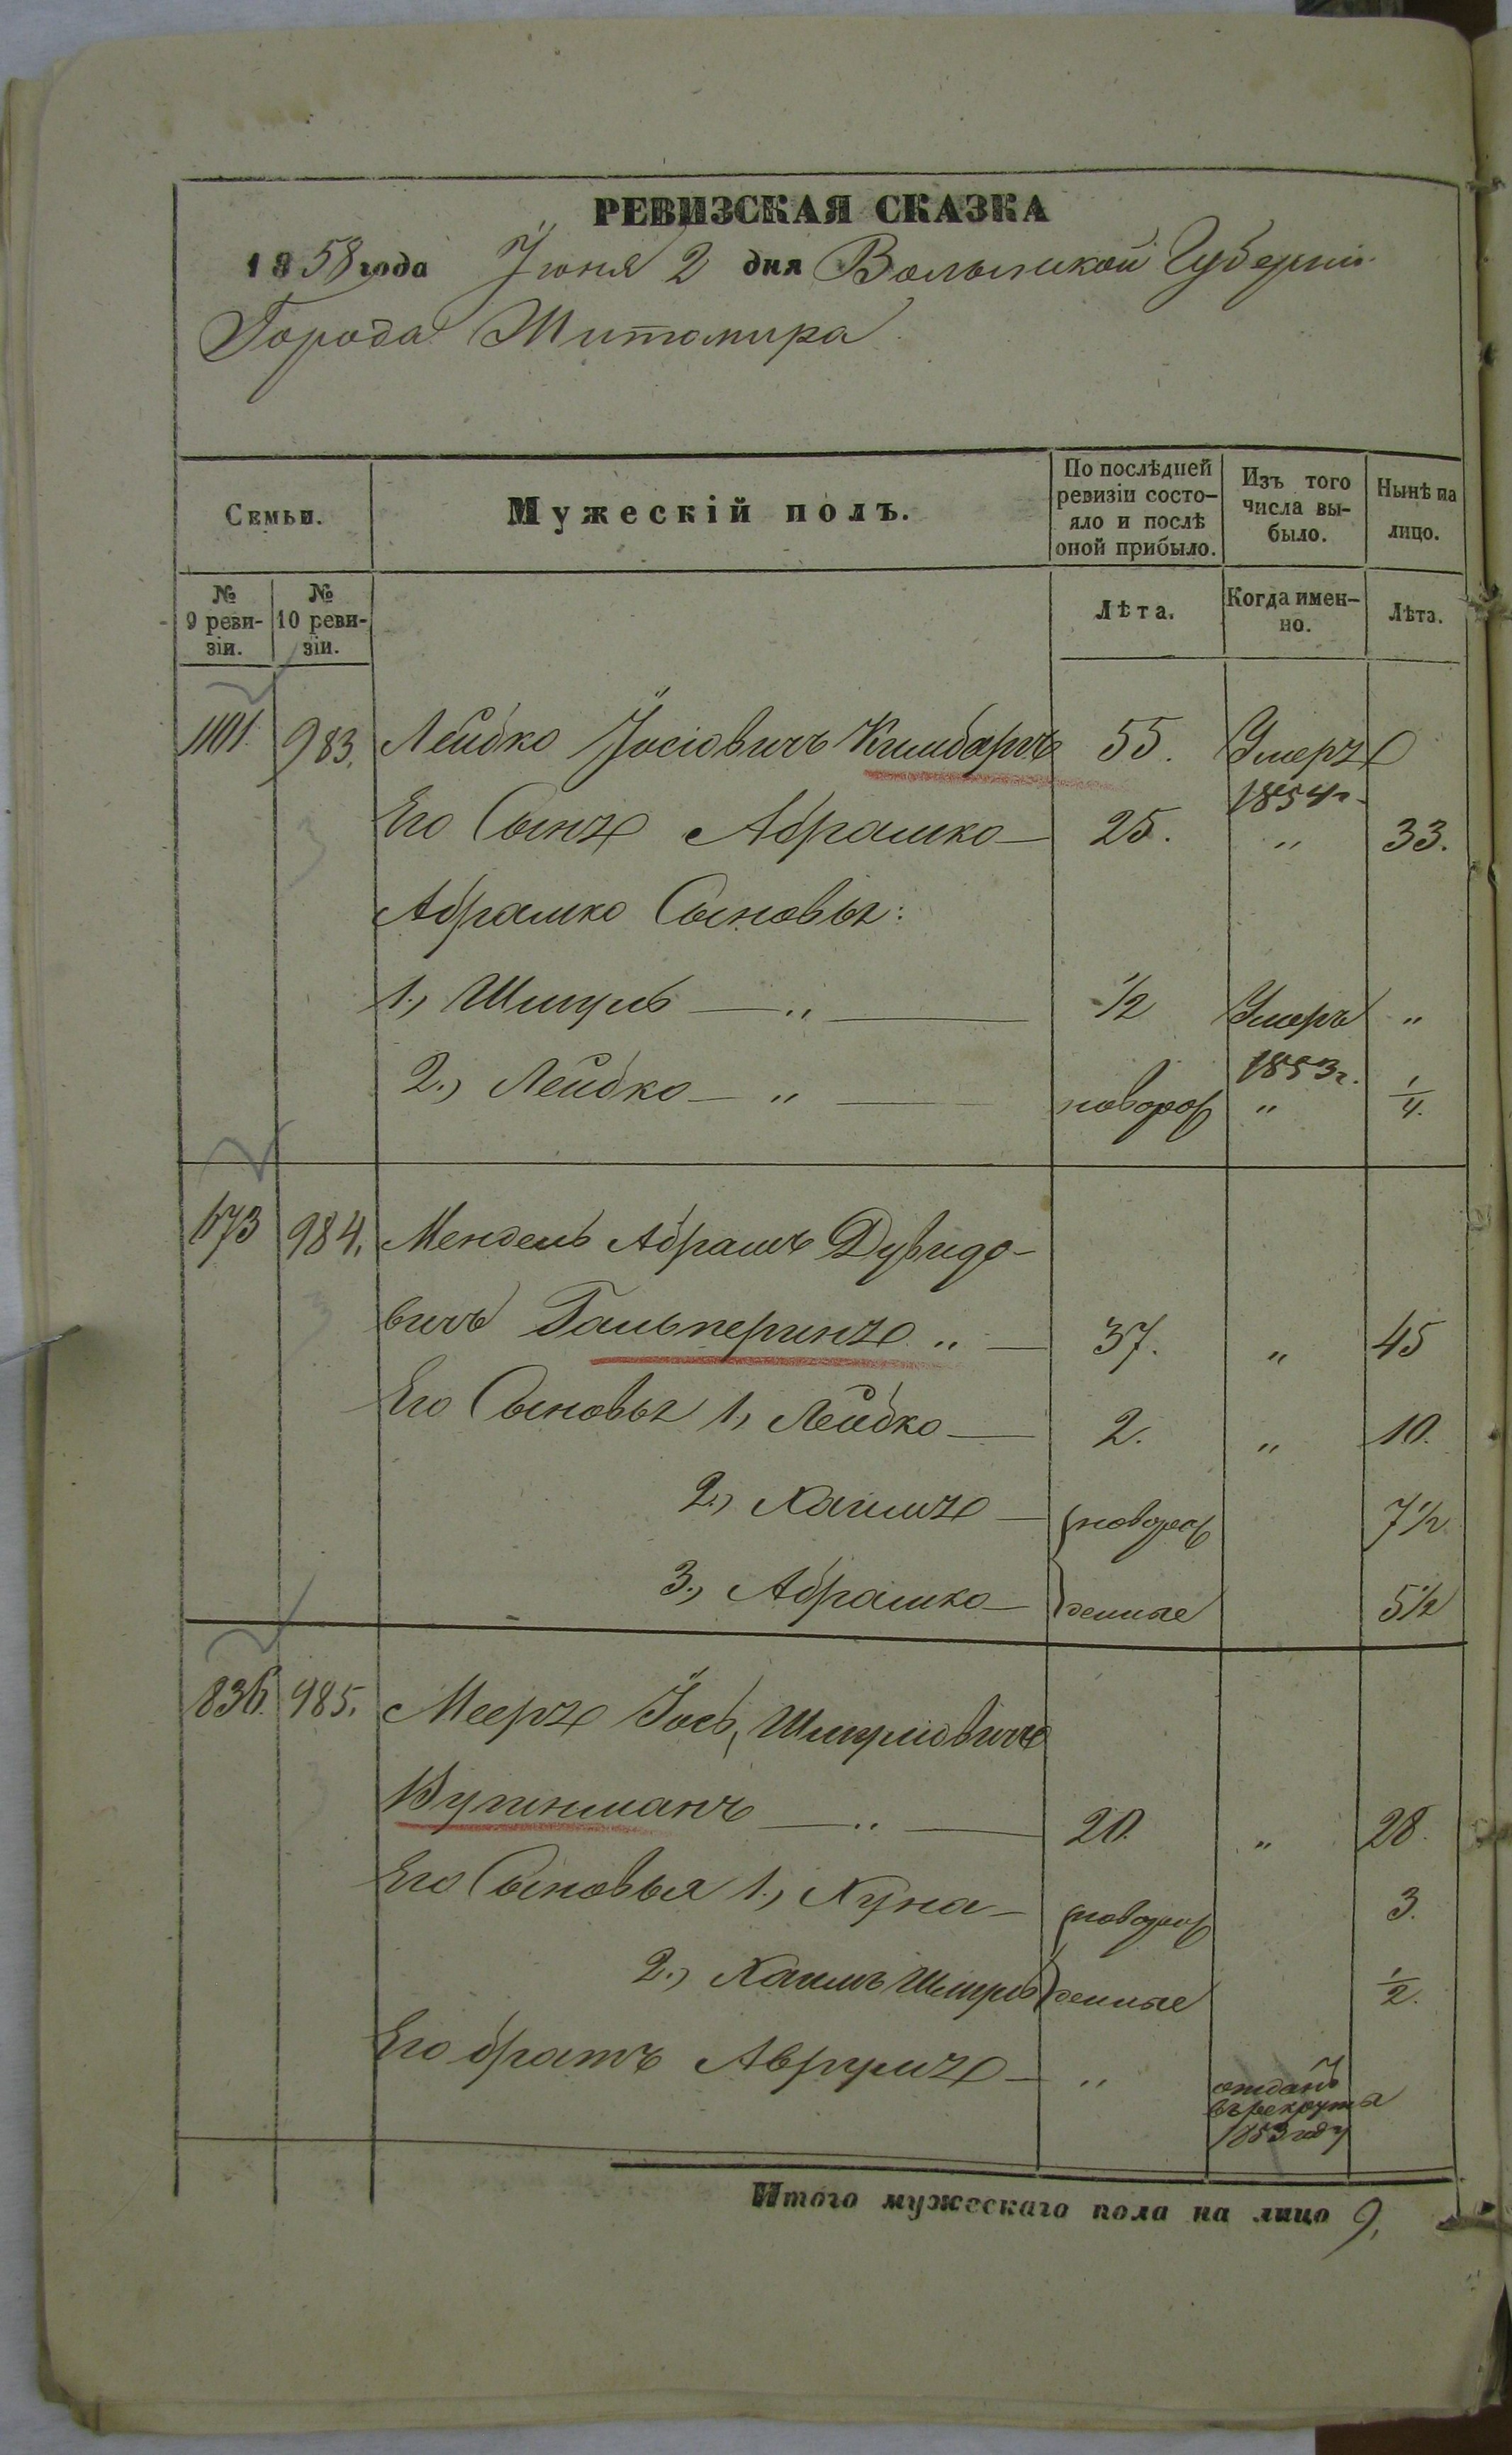 РЕВИЗСКАЯ СКАЗКА
1858 года Іюня 2 дня Волынской Губерніи
Города Житомира
Семьи.
Мужескій полъ.
По послѣдней ревизіи состо-
яло и послѣ
оной прибыло.
Изъ того
числа вы-
было.
Нынѣ на
лицо.
№
9 реви-
зіи.
№
10 реви-
зіи.
Лѣта.
Когда имен-
но.
Лѣта.
1101. 983. Лейбко Іосіовичъ Кимбаръ 55. Умеръ
1854 г.
Его Сынъ Абрашко — 25. „ 33.
Абрашко Сыновья:
1., Шмуль — „ — 1/2 Умеръ „
1853 г.
2., Лейбко — „ — новорож „ 1/4.
673 984. Мендель Абрамъ Дувидо-
вичъ Гальперинъ „ — 37. „ 45
Его Сыновья 1., Лейбко — 2. „ 10.
2., Хаимъ — новорож 7 1/2
3., Абрашко — денные 5 1/2
836. 985. Мееръ Іось Шмуліовичъ
— „ — 20. „ 28.
Его Сыновья 1., Хуна — новорож 3.
2., Хаимъ Шмуль денные 1/2.
Его братъ Аврумъ — „ отданъ
въ рекруты
1853 году
Итого мужескаго пола на лицо 9.